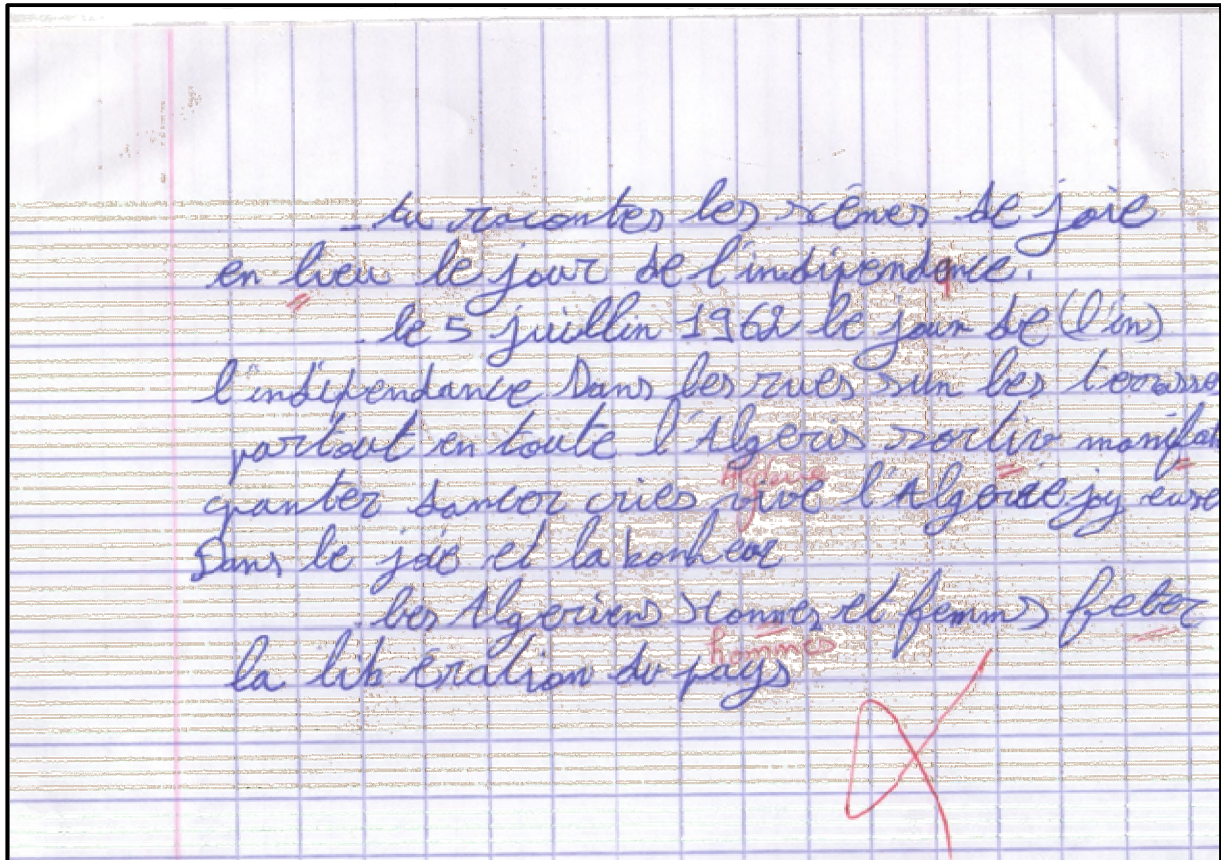 - tu racontes les scènes de joie
en lieu le jour de l'indipendance.
. le 5 juillin 1962 le jour de (l'in)
l'indipendance Dans les rues sur les terrasse
partout en toute l'Algeris sortir manifest
Algérie
chanter dancer cries vive l'Algerie joy euse
Dans le joie et la bonheur
. les Algeriens et femms feter
hommes
la libération du pays